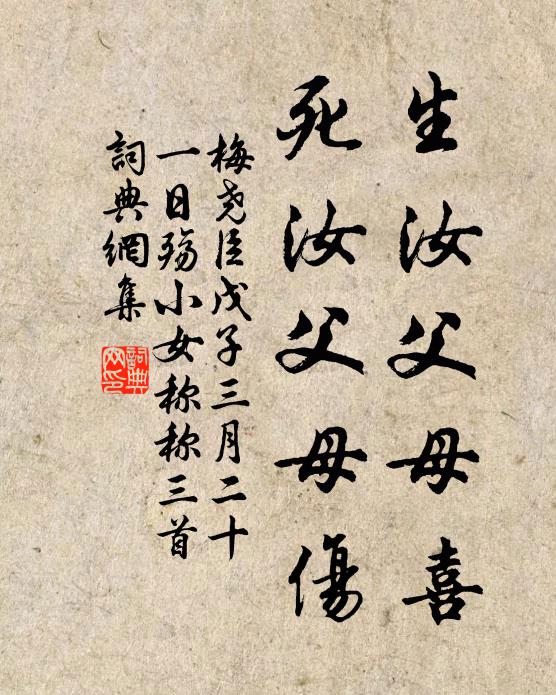 生汝父母喜
死汝父母傷
梅尧臣戊子三月二十
一日殇小女称称三首
詞典網集
詞典
网印